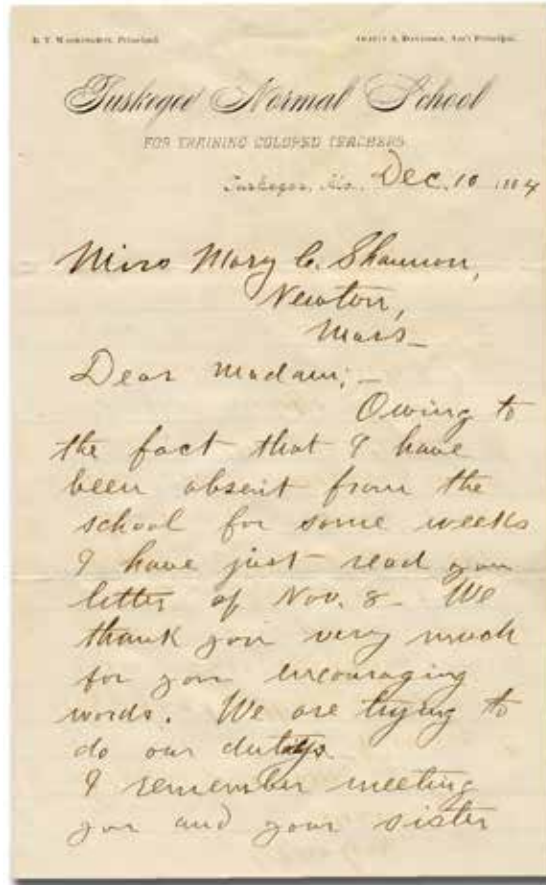 B. T. WASHINGTON, Principal. OLIVIA A. DAVIDSON, Ass't Principal.
Tuskegee Normal School
FOR TRAINING COLORED TEACHERS
Tuskegee, Ala., Dec. 10 1884
Miss Mary C. Shannon,
Newton,
Mass—
Dear Madam; —
Owing to
the fact that I have
been absent from the
school for some weeks
I have just read your
letter of Nov. 8— We
thank you very much
for your encouraging
words. We are trying to
do our
I remember meeting
you and your sister